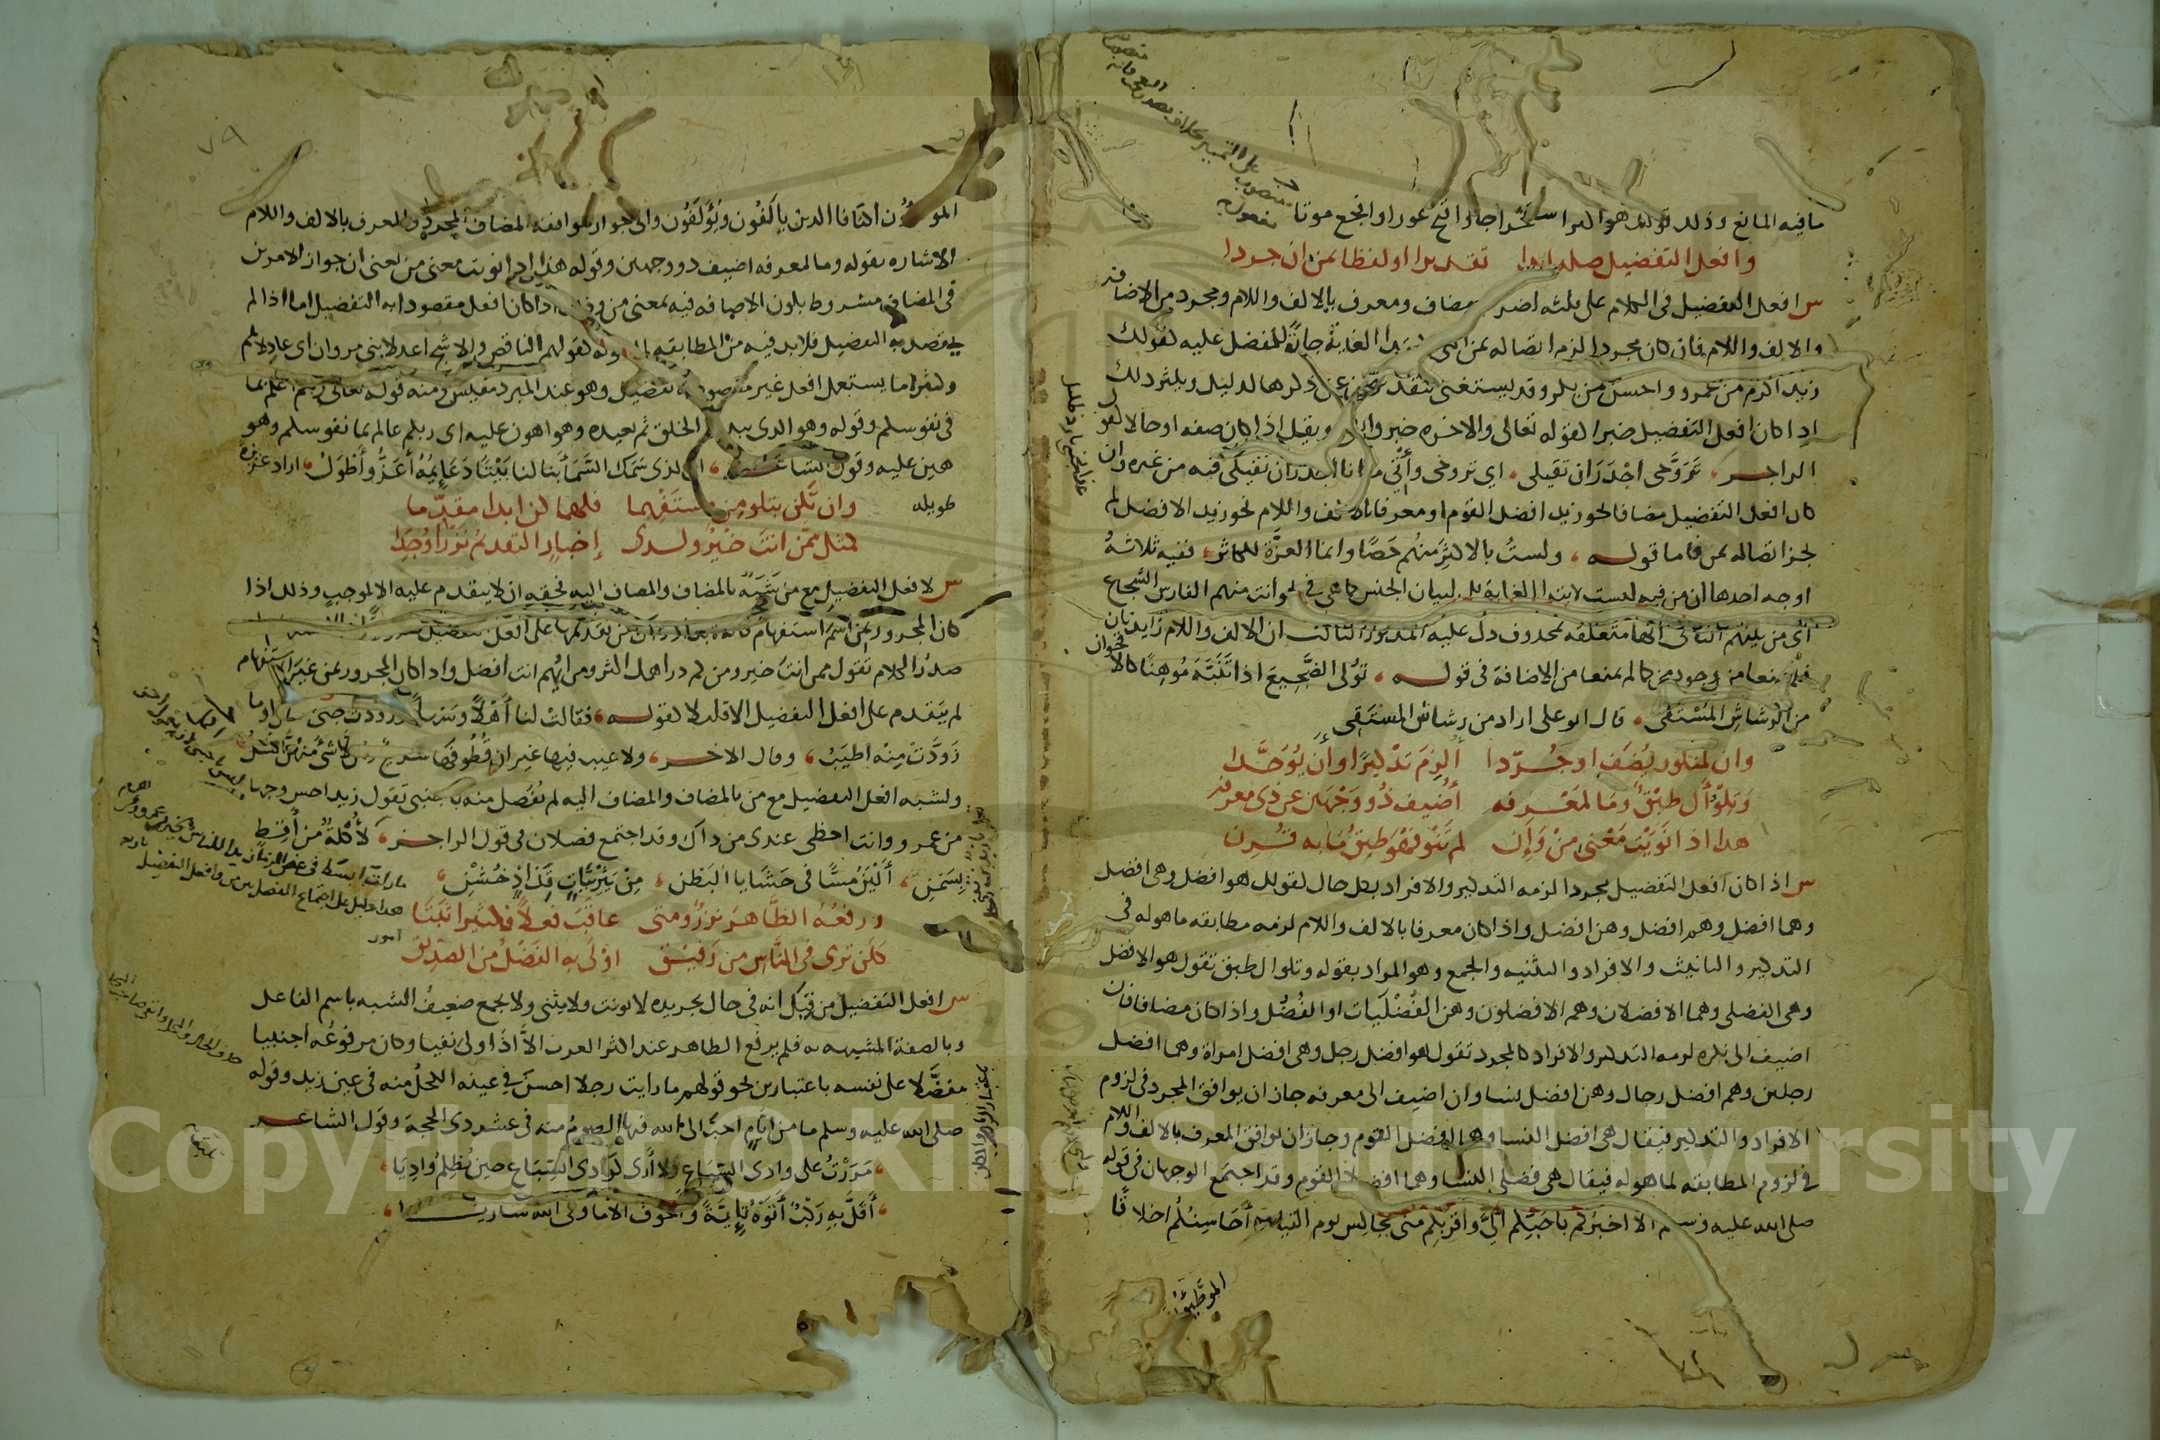 ما فيه المانع وذلك قولك هو اشد استخراجا واقبح عورا وافجع موتا
وافعل التفضيل صله ابدا تقديرا او لفظا بمن ان جردا
س افعل التفضيل فى الكلام على ثلثه اضرب مضاف ومعرف بالالف واللام ومجرد من الاضافه
والالف واللام فان كان مجردا لزم اتصاله بمن التى لابتدا الغاية جارّةً للمفضل عليه كقولك
زيد اكرم من عمرو واحسن من بكر وقد يستغنى بتقدير من عن ذكرها لدليل ويكثر ذلك
اذا كان افعل التفضيل خبرا كقوله تعالى والاخره خير وابقى ويقل اذا كان صفه او حالا كقول
الراجز تَرَوَّحى اجْدَرَ ان تقيلى اي تروحى وأتى مكانا اجدر ان تقيلى فيه من غيره وان
كان افعل التفضيل مضافا نحو زيد افضل القوم او معرفا بالالف واللام نحو زيد الافضل لم
يجز اتصاله بمن فاما قوله ولستُ بالاكثر منهُم حَصًا وانما العزَّة للكاثر ففيه ثلاثة
اوجه احدها ان من فيه ليست لابتدا الغاية بل لبيان الجنس كما هى فى نحو انت منهم الفارس الشجاع
أى من بينهم الثانى انها متعلقه بمحذوف دل عليه المذكور الثالث ان الالف واللام زايدتان
فلم يمنعا من وجود من كما لم يمنعا من الاضافة فى قوله تُولى الضَّجِيعَ اذا تَنَبَّهَ مُوهِنًا كالاقحوان
من الرشاش المُسْتَقى قال ابو على اراد من رشاش المستقى
وان لمنكور يُضَف او جُرّدا أُلزِمَ تذكيرًا وان يُوَحَّدا
وتِلْوُ أَل طِبْقٌ وما لمَعْرفه أُضيف ذُو وَجْهَين عن ذى معرفه
هذا اذا نَوَيْت مَعْنى مِنْ وَإِن لم تَنْوِ فهْوَ طِبْقُ مَا به قُرِن
س اذا كان افعل التفضيل مجردا لزمه التذكير والافراد بكل حال كقولك هو افضل وهى افضل
وهما افضل وهم افضل وهن افضل واذا كان معرفا بالالف واللام لزمه مطابقه ما هو له فى
التذكير والتانيث والافراد والتثنيه والجمع وهو المراد بقوله وتلو ال طبق تقول هو الافضل
وهى الفضلى وهما الافضلان وهم الافضلون وهن الفُضْلَيات او الفُضَّل واذا كان مضافا فان
اضيف الى نكره لزمه التذكير والافراد كالمجرد تقول هو افضل رجل وهى افضل امراة وهما افضل
رجلين وهم افضل رجال وهن افضل نسا وان اضيف الى معرفه جاز ان يوافق المجرد فى لزوم
الافراد والتذكير فيقال هى افضل النسا وهما افضل القوم وجاز ان يوافق المعرف بالالف واللام
فى لزوم المطابقه لما هو له فيقال هى فضلى النسا وهما افضلا القوم وقد اجتمع الوجهان فى قوله
صلى الله عليه وسلم الا اخبرُكم باحَبِّكم اليَّ واقربكم منى مجالس يوم القيامه أَحَاسِنُكُم اخلاقًا
الموطَّئون
٧٩
الموطَّؤُن اكنافا الذين يالَفُون ويُؤلَفُون والى جواز موافقه المضاف المجرد والمعرف بالالف واللام
الاشاره بقوله وما لمعرفه اضيف ذو وجهين وقوله هذا اذا نويت معنى من يعنى ان جواز الامرين
فى المضاف مشروط بكون الاضافه فيه بمعنى من وذلك اذا كان افعل مقصودا به التفضيل اما اذا لم
يقصد به التفضيل فلا بد فيه من المطابقه لما هو له كقولهم الناقص والاشج اعدلا بنى مروان اى عادلاهم
وكثيرا ما يستعمل افعل غير مقصود به تفضيل وهو عند المبرد مقيس ومنه قوله تعالى ربكم اعلم بما
فى نفوسكم وقوله وهو الذى يبدا الخلق ثم يعيده وهو اهون عليه اى ربكم عالم بما نفوسكم وهو
هين عليه وقول الشاعر ان الذى سَمَكَ السَّمَا بَنا لنا بَيْتًا دَعَائِمُهُ أَعَزُّ وأَطْوَلُ اراد عزيزة
طويله وان تكن بتلو مِن مُسْتَفْهِما فلهما كن ابدا مقدِّما
كمثل مِمَّن انتَ خَيْرٌ ولدى إخبارٍ التقديمُ نَزْرًا وُجِدَا
س لافعل التفضيل مع من شَبَهٌ بالمضاف والمضاف اليه فحقه ان لا يتقدم عليه الا لموجب وذلك اذا
كان المجرور بمن اسم استفهام
صدرُ الكلام تقول ممن انتَ خير ومن كم دراهمك اكثر ومن ايُّهم انت افضل واذا كان المجرور بمن غيرَ الاستفهام
لم يتقدم على افعل التفضيل الا قليلا كقوله فقالت لنا أَهْلاً وسَهلاً وزودت جنى النحل او ما
زَوَّدَتْ مِنْه اطْيَبُ وقال الاخر ولا عيب فيها غير ان قُطُوفَها سريعٌ وان لا شئ منهُنَّ اكسلُ
ولشبه افعل التفضيل مع من بالمضاف والمضاف اليه لم يُفصَل منه باجنبى تقول زيد احسن وجها
من عمرو وانت احظى عندى من ذاك وقد اجتمع فصلان فى قول الراجز لأُكْلَةٌ من أَقِطٍ
بسَمْنِ أَلْيَنُ مَسًّا فى حَشَايا البَطْنِ مِنْ يَثْرِبيَّاتٍ قِذَاذٍ خُشْنِ
ورفعُهُ الظَّاهرَ نزْرٌ ومتى عاقَبَ فعلاً فكثيرا ثَبَتَا
كلن ترى فى النَّاسِ من رَفيقٍ اوْلَى به الفَضْلُ من الصدّيق
س افعل التفضيل من قِبَل انه فى حال تجريده لا يونث ولا يثنى ولا يجمع ضعيفُ الشبه باسم الفاعل
وبالصفة المشبهه به فلم يرفع الظاهر عند اكثر العرب الاّ اذا ولى نفيا وكان مرفوعُه اجنبيا
مفضَّلا على نفسه باعتبارين نحو قولهم ما رايت رجلا احسنَ فى عينه الكحلُ منه فى عين زيد وقوله
صلى الله عليه وسلم ما من ايام احبَّ الى الله فيها الصومُ منه فى عشر ذى الحجة وقول الشاعر
مَرَرْتُ على وادى السِّبَاعِ ولا أَرَى كوَادِى السِّبَاعِ حينَ يُظلِمُ وادِيَا
أَقَلَّ بِهِ رَكْبٌ أَتَوْهُ تَإِيَّةً وأَخْوَفَ الا ما وَقَى الله سَارِيَا
Copyright © King Saud University